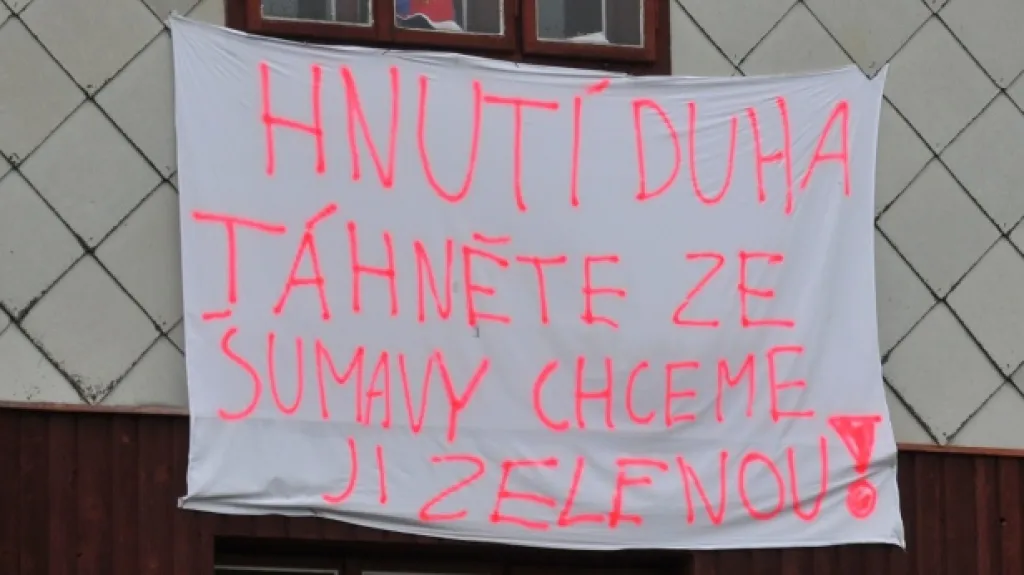 HNUTÍ DUHA
TÁHNĚTE ZE
ŠUMAVY CHCEME
JI ZELENOU!